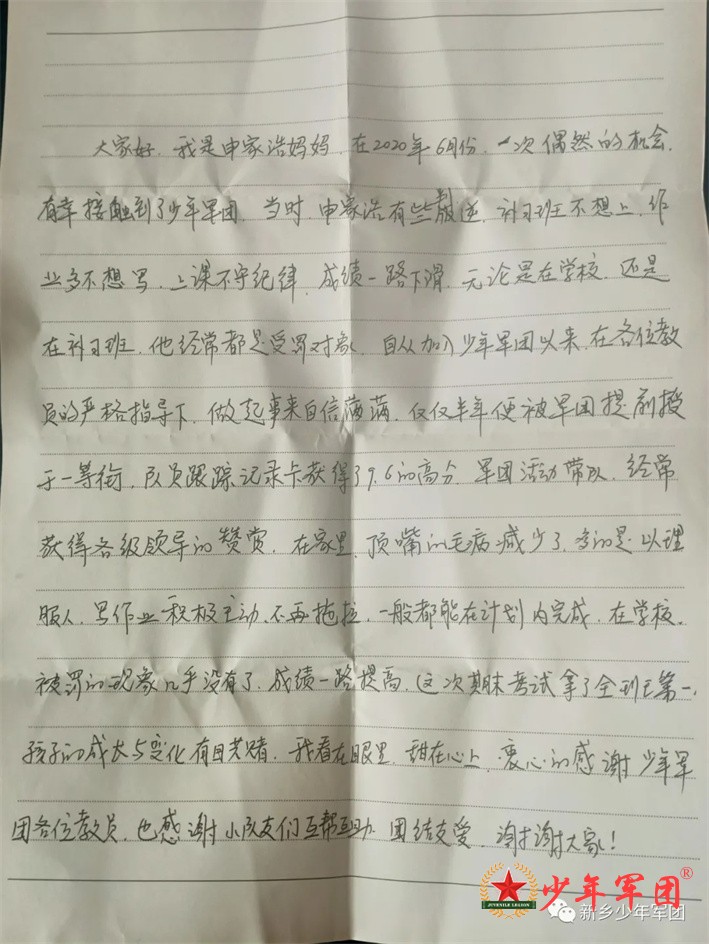 大家好，我是申家浩妈妈，在2020年6月份，一次偶然的机会，
有幸接触到了少年军团，当时，申家浩有些叛逆，补习班不想上，作
业多不想写，上课不守纪律，成绩一路下滑，无论是在学校，还是
在补习班，他经常都是受罚对象，自从加入少年军团以来，在各位教
员的严格指导下，做起事来自信满满，仅仅半年便被军团提前授
于一等衔，队员跟踪记录卡获得了9.6的高分，军团活动带队，经常
获得各级领导的赞赏，在家里，顶嘴的毛病减少了，多的是以理
服人，写作业积极主动、不再拖拉，一般都能在计划内完成，在学校，
被罚的现象几乎没有了，成绩一路提高，这次期末考试拿了全班第一，
孩子的成长与变化有目共睹，我看在眼里，甜在心上，衷心的感谢少年军
团各位教员，也感谢小队友们互帮互助，团结友爱，谢谢大家！
少年军团®
JUVENILE LEGION
新乡少年军团